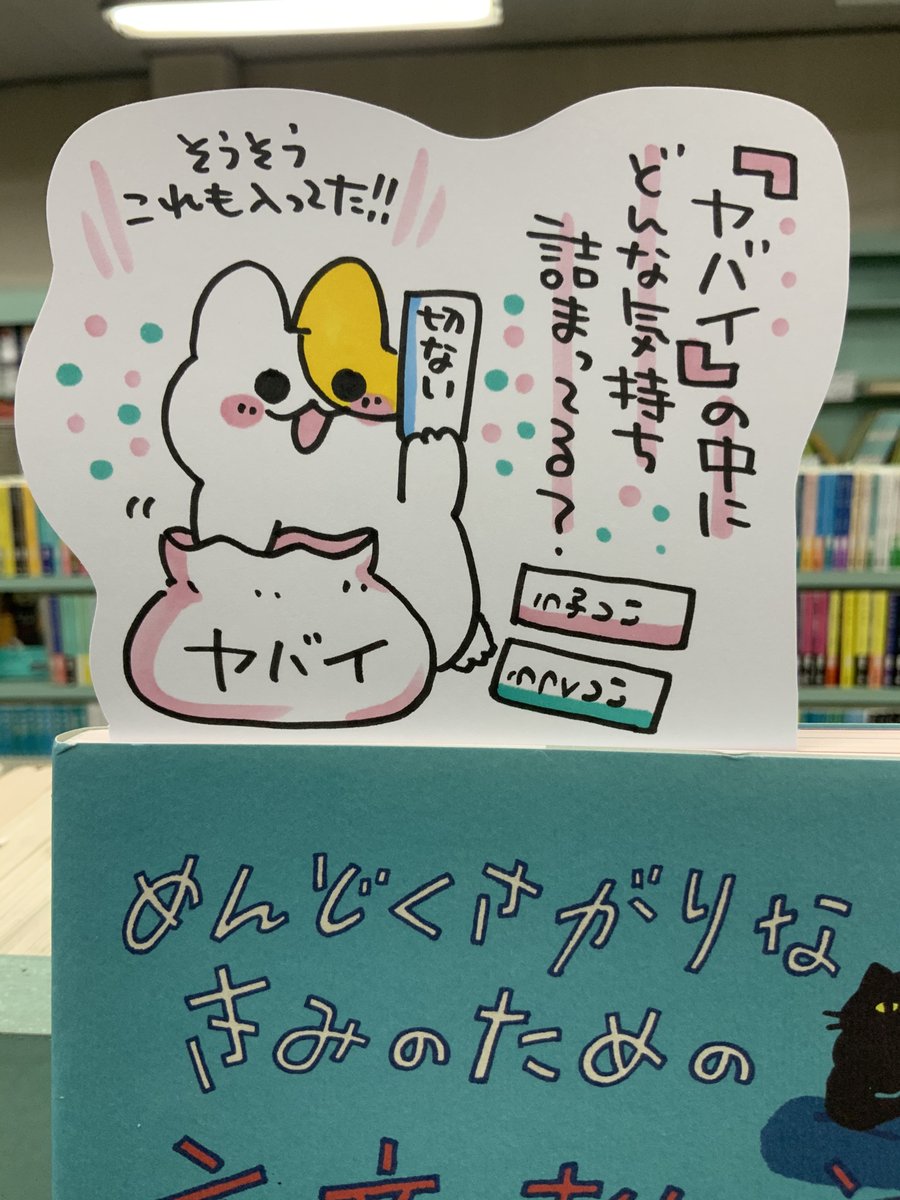 『ヤバイ』の中に
どんな気持ち
詰まってる？
そうそう
これも入ってた!!
切ない
ヤバイ
めんどくさがりな
きみのための